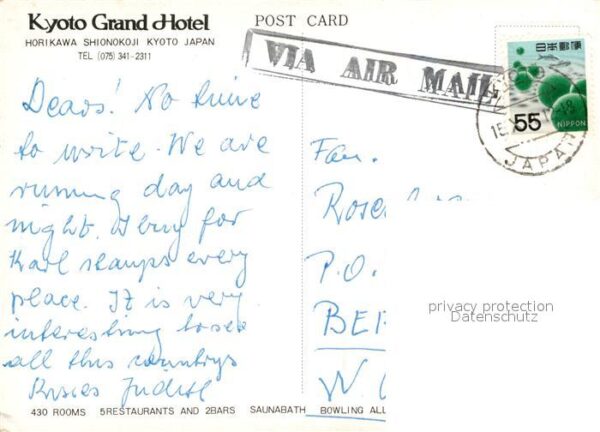 Kyoto Grand Hotel
HORIKAWA SHIONOKOJI KYOTO JAPAN
TEL (075) 341-2311
POST CARD
VIA AIR MAIL
日本郵便
55
NIPPON
JAPAN
Dears! No time
to write. We are
running day and
night. I buy for
Karl stamps every
place. It is very
interesting to see
all this countrys
Kisses Judith
Fam.
Rose
P.O.
BER
W
privacy protection
Datenschutz
430 ROOMS 5RESTAURANTS AND 2BARS SAUNABATH BOWLING ALL